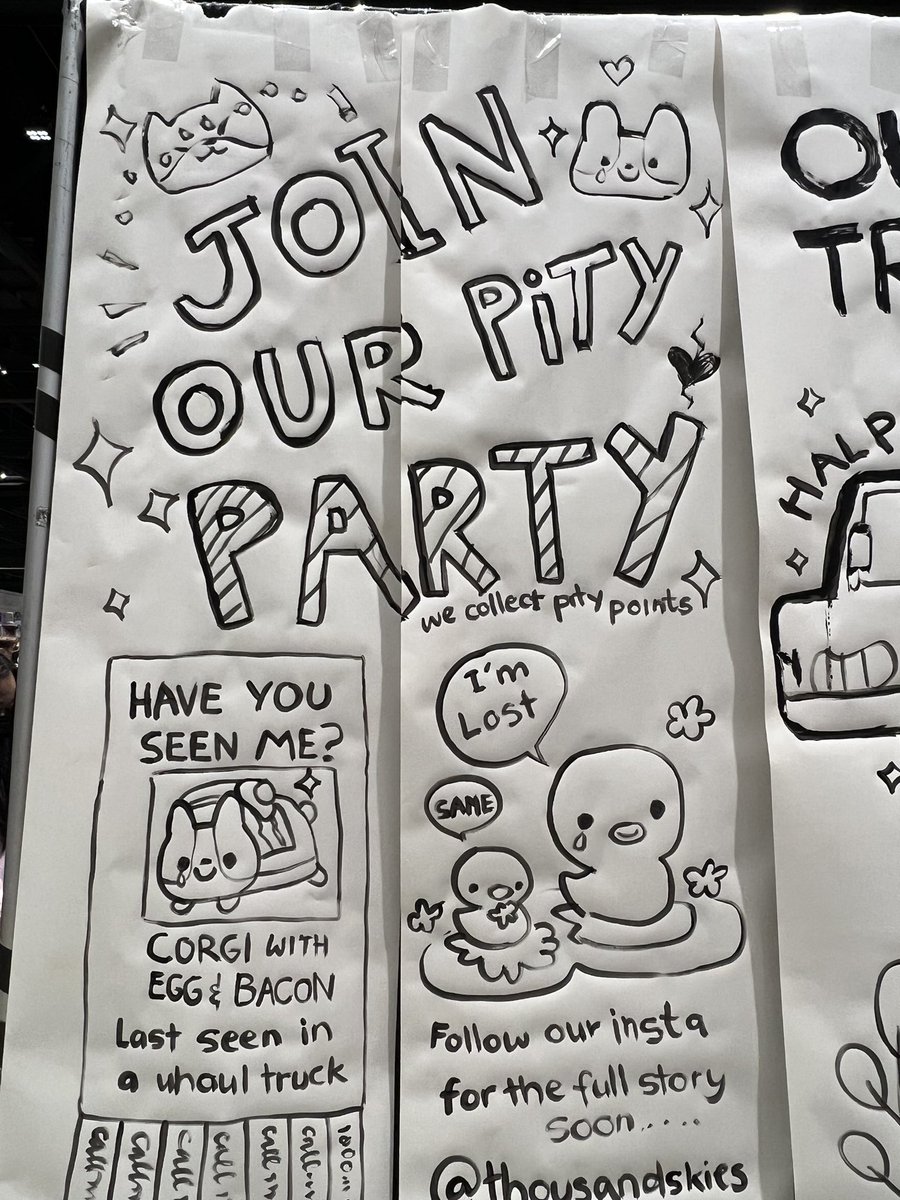 JOIN
OUR PITY
PARTY
we collect pity points
HAVE YOU
SEEN ME?
CORGI WITH
EGG & BACON
Last seen in
a uhaul truck
call
call
call
call
call
call
I'm
Lost
SAME
Follow our insta
for the full story
soon.....
@thousandskies
OU
TR
HALP